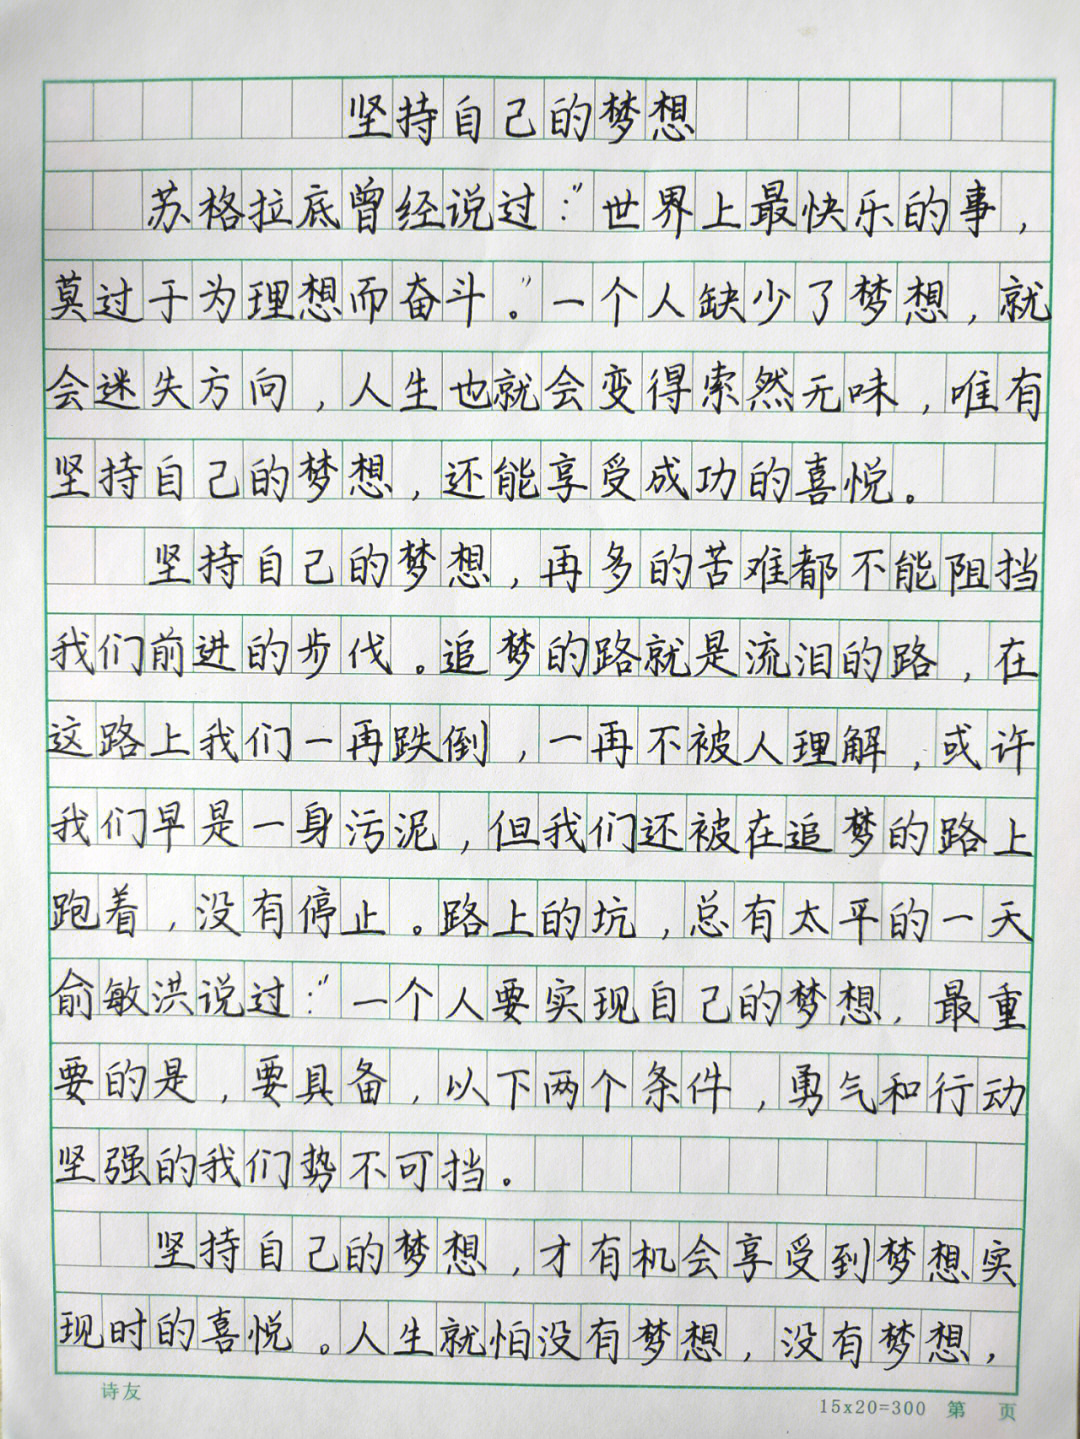 坚持自己的梦想
苏格拉底曾经说过:"世界上最快乐的事，
莫过于为理想而奋斗。"一个人缺少了梦想，就
会迷失方向，人生也就会变得索然无味，唯有
坚持自己的梦想，还能享受成功的喜悦。
坚持自己的梦想，再多的苦难都不能阻挡
我们前进的步伐。追梦的路就是流泪的路，在
这路上我们一再跌倒，一再不被人理解，或许
我们早是一身污泥，但我们还被在追梦的路上
跑着，没有停止。路上的坑，总有太平的一天
俞敏洪说过:"一个人要实现自己的梦想，最重
要的是，要具备，以下两个条件，勇气和行动
坚强的我们势不可挡。
坚持自己的梦想，才有机会享受到梦想实
现时的喜悦。人生就怕没有梦想，没有梦想，
诗友
15x20=300 第 页